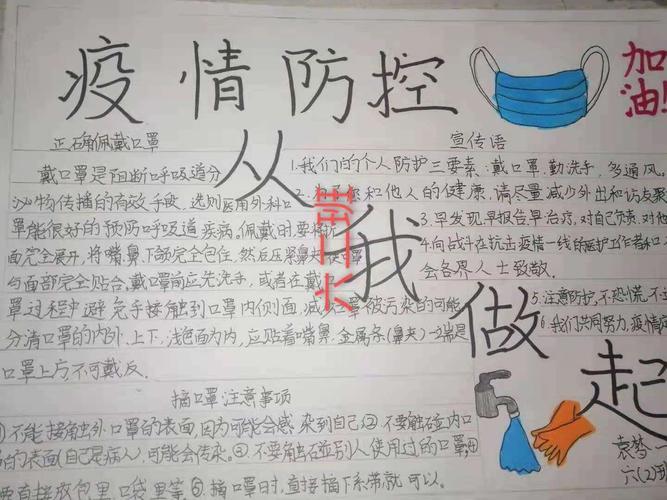 疫情防控
加油!
从我做起
正确佩戴口罩
戴口罩是阻断呼吸道分
泌物传播的有效手段,选则医用外科口
罩能很好的预防呼吸道疾病。佩戴时要将折
面完全展开,将嘴鼻、下颌完全包住,然后压紧鼻夹
与面部完全贴合。戴口罩前应先洗手,或者在戴口
罩过程中避免手接触到口罩内侧面,减 口罩被污染的可能
分清口罩的内外、上下,浅色面为内,应贴着嘴鼻,金属条(鼻夹)一端是
口罩上方,不可戴反。
摘口罩注意事项
①不能接触外口罩的表面,因为可能会感染到自己②不要触碰内口
的表面(自己是病人),可能会传染。③不要触碰别人使用过的口罩,
要直接放包里、口袋里等⑤摘口罩时,直接摘下系带就可以。
宣传语
1.我们的个人防护三要素:戴口罩.勤洗手,多通风。
2. 和他人的健康,请尽量减少外出和访友聚
3.早发现,早报告,早治疗,对自己负责,对他
4.向战斗在抗击疫情一线的医护工作者和
会各界人士致敬。
5.注意防护,不恐慌,不
6.我们共同努力,疫情
袁梦一
六(2)班
第一大